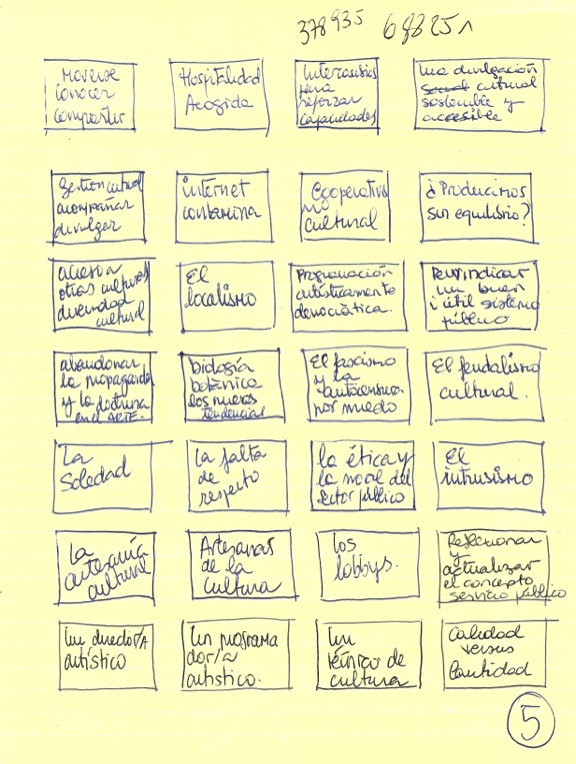 378935 688251
Moverse
conocer
compartir
Hospitalidad
Acogida
Intercambios
para
reforzar
capacidades
Una divulgación
social cultural
sostenible y
accesible
Gestion cultural
acompañar
divulgar
internet
contamina
Cooperativismo
cultural
¿Producimos
sin equilibrio?
acceso a
otras culturas
diversidad
cultural
El
localismo
Programación
artísticamente
democrática.
Reivindicar
un buen
i útil sistema
público
abandonar
la propaganda
y la doctrina
en el ARTE.
biología
botánica
los nuevos
tendencias
El fascismo
y la
autocensura
por miedo
El feudalismo
cultural.
La
Soledad
La falta
de
respeto
la ética y
la moral del
sector público
El
intrusismo
La
autarquía
cultural
Artesanas
de la
cultura
los
lobbys.
Reflexionar
y
actualizar
el concepto
servicio público
Un director/A
artístico
Un programa
dor/a
artístico.
Un
técnico de
cultura
Calidad
versus
Cantidad
5